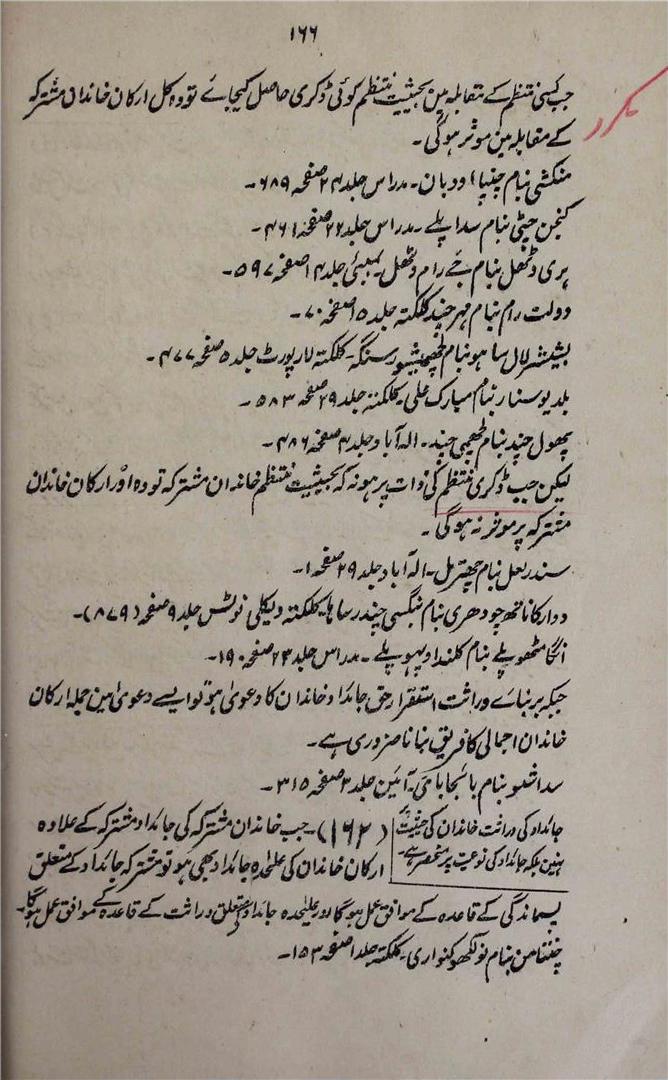 ۱۶۶
جب کسی منتظم کے مقابلہ مین بحیثیت منتظم کوئی ڈکری حاصل کیجائے تو وہ کل ارکان خاندان مشترکہ
کے مقابلہ مین موثر ہوگی۔
منکشی بنام چنپا ودیان۔ مدراس جلد ۲۴ صفحہ ۶۸۹۔
کنجن چیٹی بنام سداپلے۔ مدراس جلد ۲۲ صفحہ ۴۶۱۔
ہری وٹھل بنام جے رام وٹھل۔ بمبئی جلد ۱۴ صفحہ ۵۹۷۔
دولت رام بنام مہر چند کلکتہ جلد ۱۵ صفحہ ۷۰۔
بشیشر لال ساہو بنام لچھمیشور سنگہ۔ کلکتہ لارپورٹ جلد ۵ صفحہ ۴۷۷۔
بلدیو سنار بنام مبارک علی۔ کلکتہ جلد ۲۹ صفحہ ۵۸۳۔
پھول چند بنام لچھمی چند۔ الہ آباد جلد ۴ صفحہ ۴۸۶۔
لیکن جب ڈکری منتظم کی ذات پر ہو نہ کہ بحیثیت منتظم خاندان مشترکہ تو وہ اور ارکان خاندان
مشترکہ پر موثر نہ ہوگی۔
سندر لعل بنام چھترمل۔ الہ آباد جلد ۲۹ صفحہ ۱۔
دوارکا ناتھ چودھری بنام بنگسی چندر ساہا۔ کلکتہ ویکلی نوٹس جلد ۹ صفحہ (۸۷۹)۔
انگامتھو پلے بنام کلنداویہو پلے۔ مدراس جلد ۲۳ صفحہ ۱۹۰۔
جبکہ بربنائے وراثت استقرار حق جائداد خاندان کا دعویٰ ہو تو ایسے دعویٰ مین جملہ ارکان
خاندان اجمالی کا فریق بنانا ضروری ہے۔
سداشیو بنام بائجابائی۔ آئین جلد ۳ صفحہ ۳۱۵۔
جائداد کی وراثت خاندان کی حیثیت پر
نہین بلکہ جائداد کی نوعیت پر منحصر ہے۔
(۱۶۲)۔ جب خاندان مشترکہ کی جائداد مشترکہ کے علاوہ
ارکان خاندان کی علٰحدہ جائداد بھی ہو تو مشترکہ جائداد کے متعلق
پسماندگی کے قاعدہ کے موافق عمل ہوگا اور علٰحدہ جائداد کے متعلق وراثت کے قاعدہ کے موافق عمل ہوگا۔
چنتامن بنام نولکھو کنواری۔ کلکتہ جلد ۱ صفحہ ۱۵۳۔